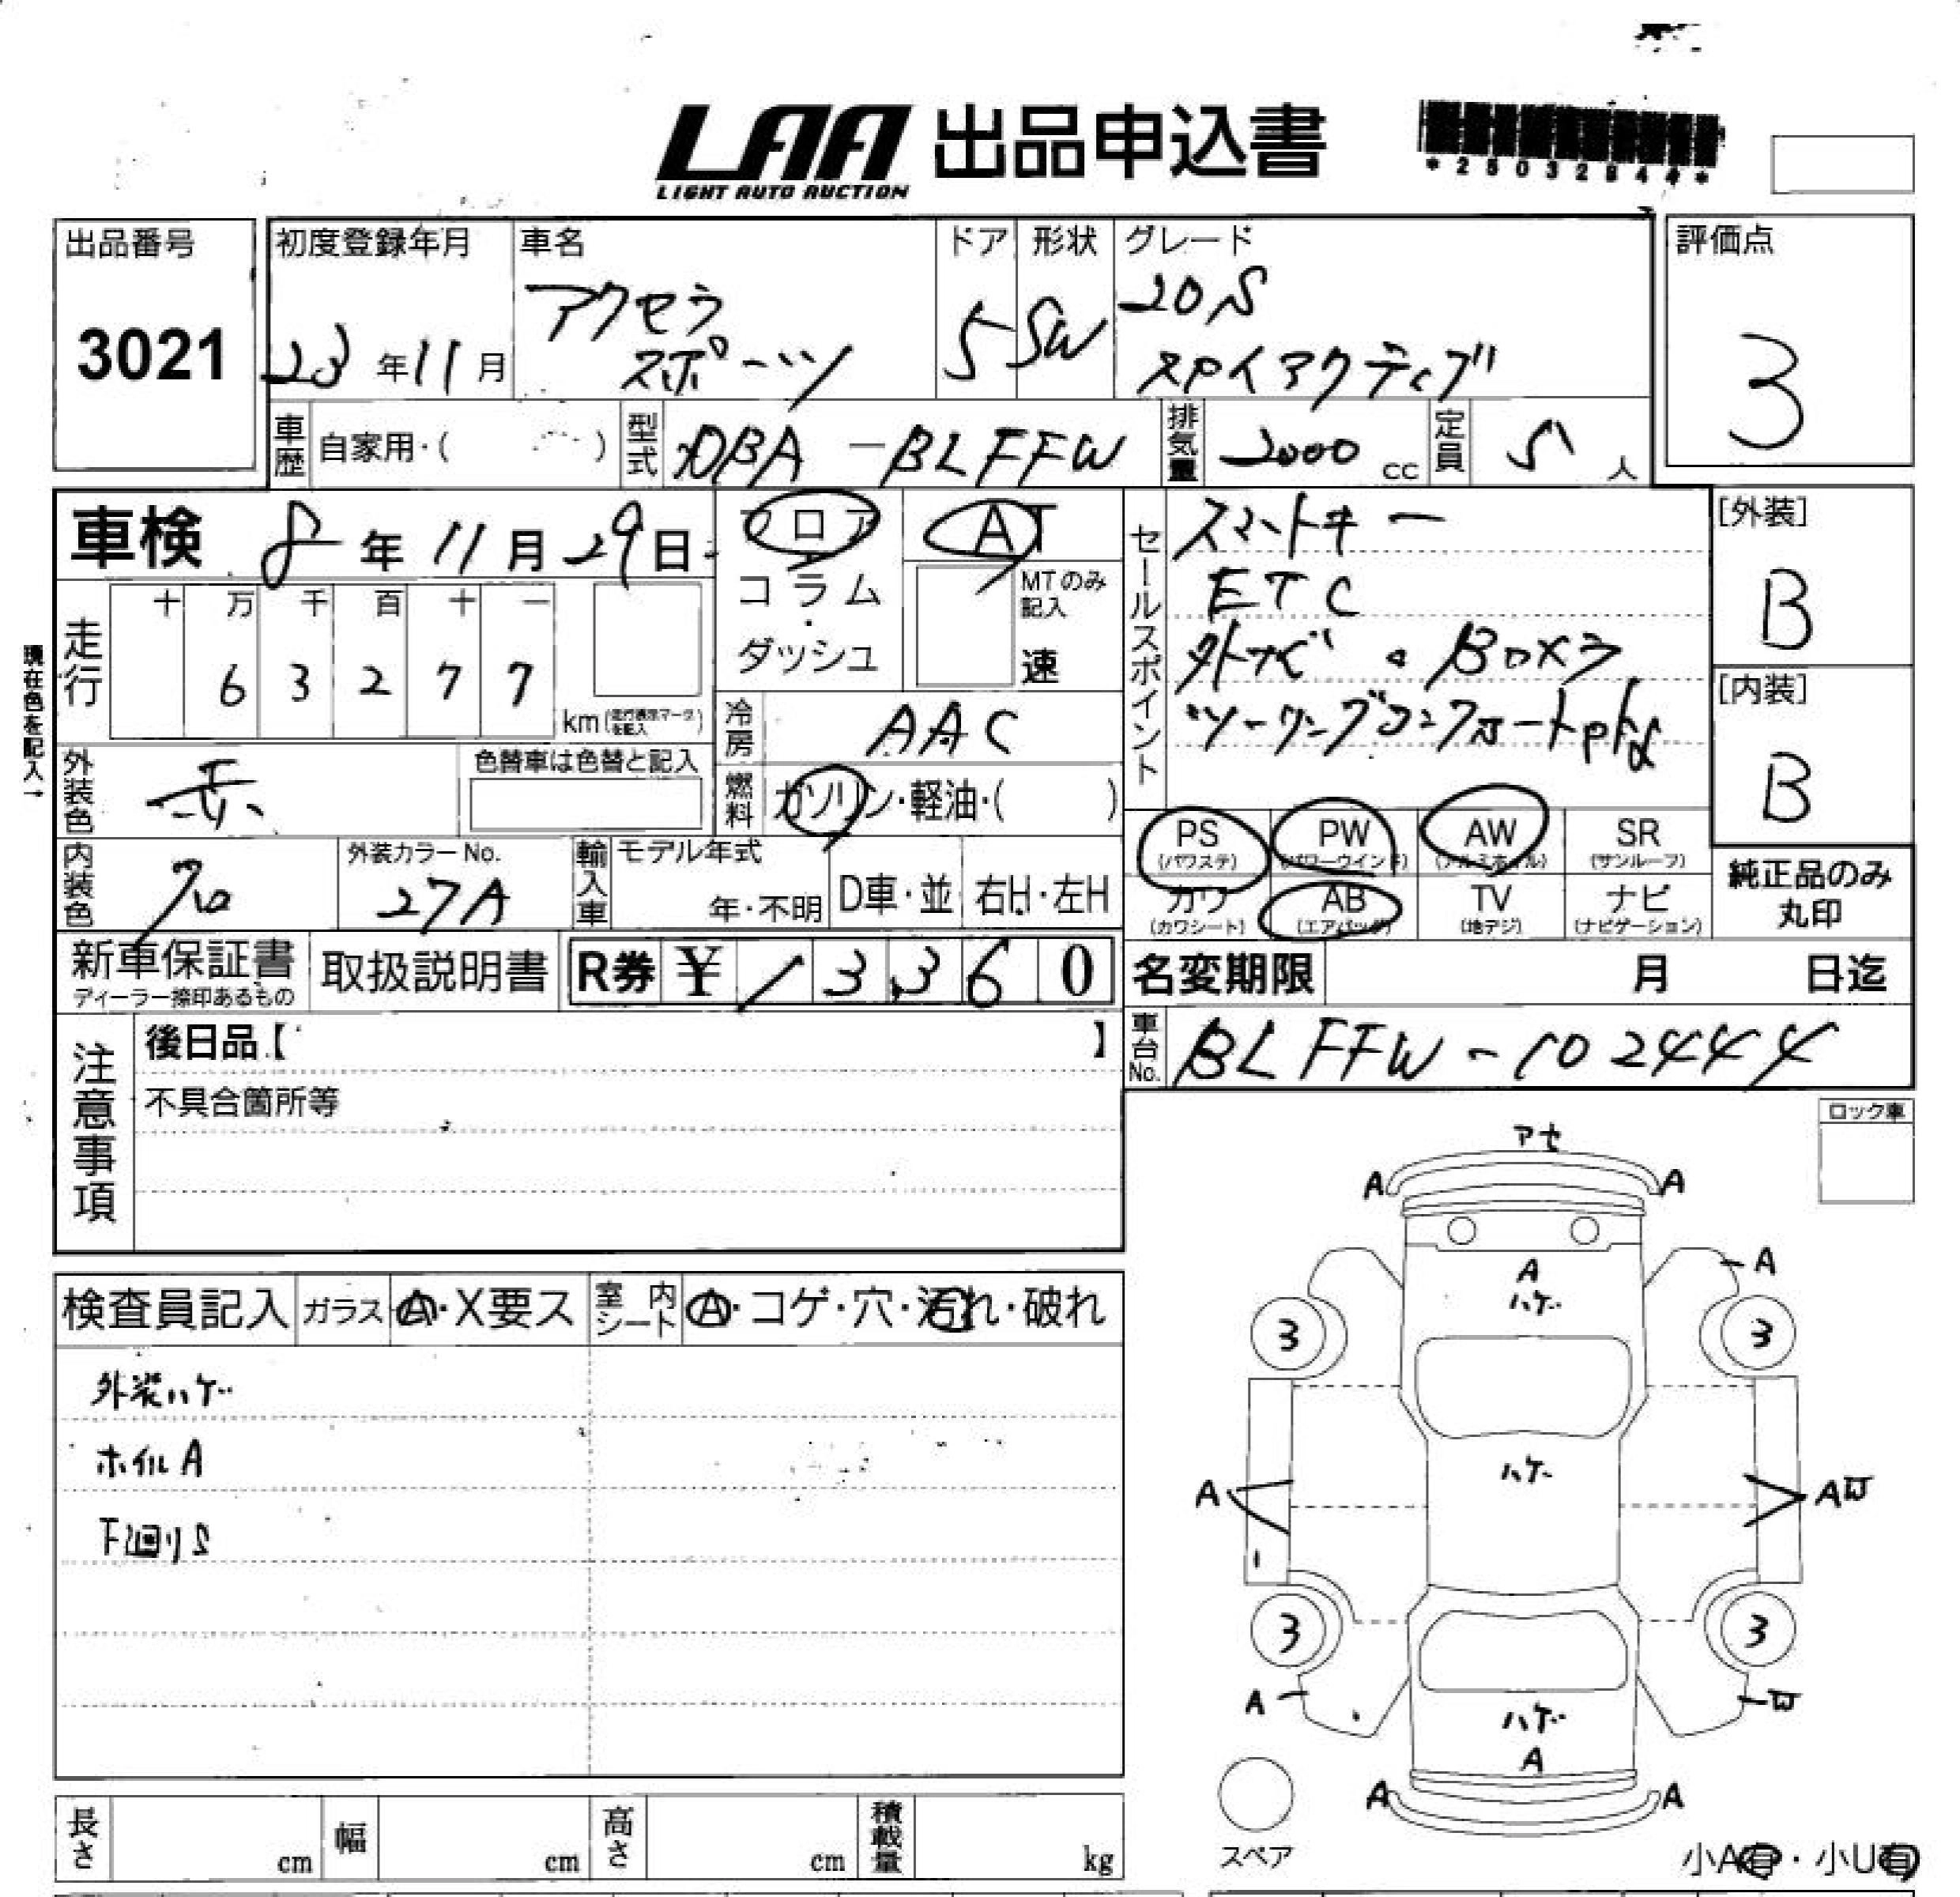 LAA 出品申込書
LIGHT AUTO AUCTION
*25032944*
出品番号
3021
初度登録年月
23年11月
車名
アクセラ
スポーツ
ドア
5
形状
SW
グレード
20S
スカイアクティブ
評価点
3
車歴 自家用・( )
型式 DBA-BLFFW
排気量 2000 cc
定員 5人
車検 8年11月29日
フロア・コラム・ダッシュ
AT
MTのみ記入
速
セールスポイント
スマートキー
ETC
外ナビ・BOXラ
ツーリングコンフォートpkg
[外装]
B
[内装]
B
現在色を記入→
走行 十 万 千 百 十 一
6 3 2 7 7
km (走行表示マークを記入)
冷房 AAC
外装色 赤
色替車は色替と記入
燃料 ガソリン・軽油・( )
内装色 クロ
外装カラーNo.
27A
輸入車 モデル年式
年・不明
D車・並 右H・左H
PS (パワステ)
PW (パワーウインド)
AW (アルミホイル)
SR (サンルーフ)
カワ (カワシート)
AB (エアバッグ)
TV (地デジ)
ナビ (ナビゲーション)
純正品のみ
丸印
新車保証書
ディーラー捺印あるもの
取扱説明書
R券 ¥ 13,360
名変期限 月 日迄
車台No. BLFFW-102444
注意事項
後日品【 】
不具合箇所等
ロック車
検査員記入 ガラス A・X要ス 室内シート A・コゲ・穴・汚れ・破れ
外装ハゲ
ホイルA
下廻りS
アセ
A A
A
ハゲ
A
3 3
ハゲ
A AW
3 3
A W
ハゲ
A
A A
スペア
小A有・小U有
長さ cm
幅 cm
高さ cm
積載量 kg